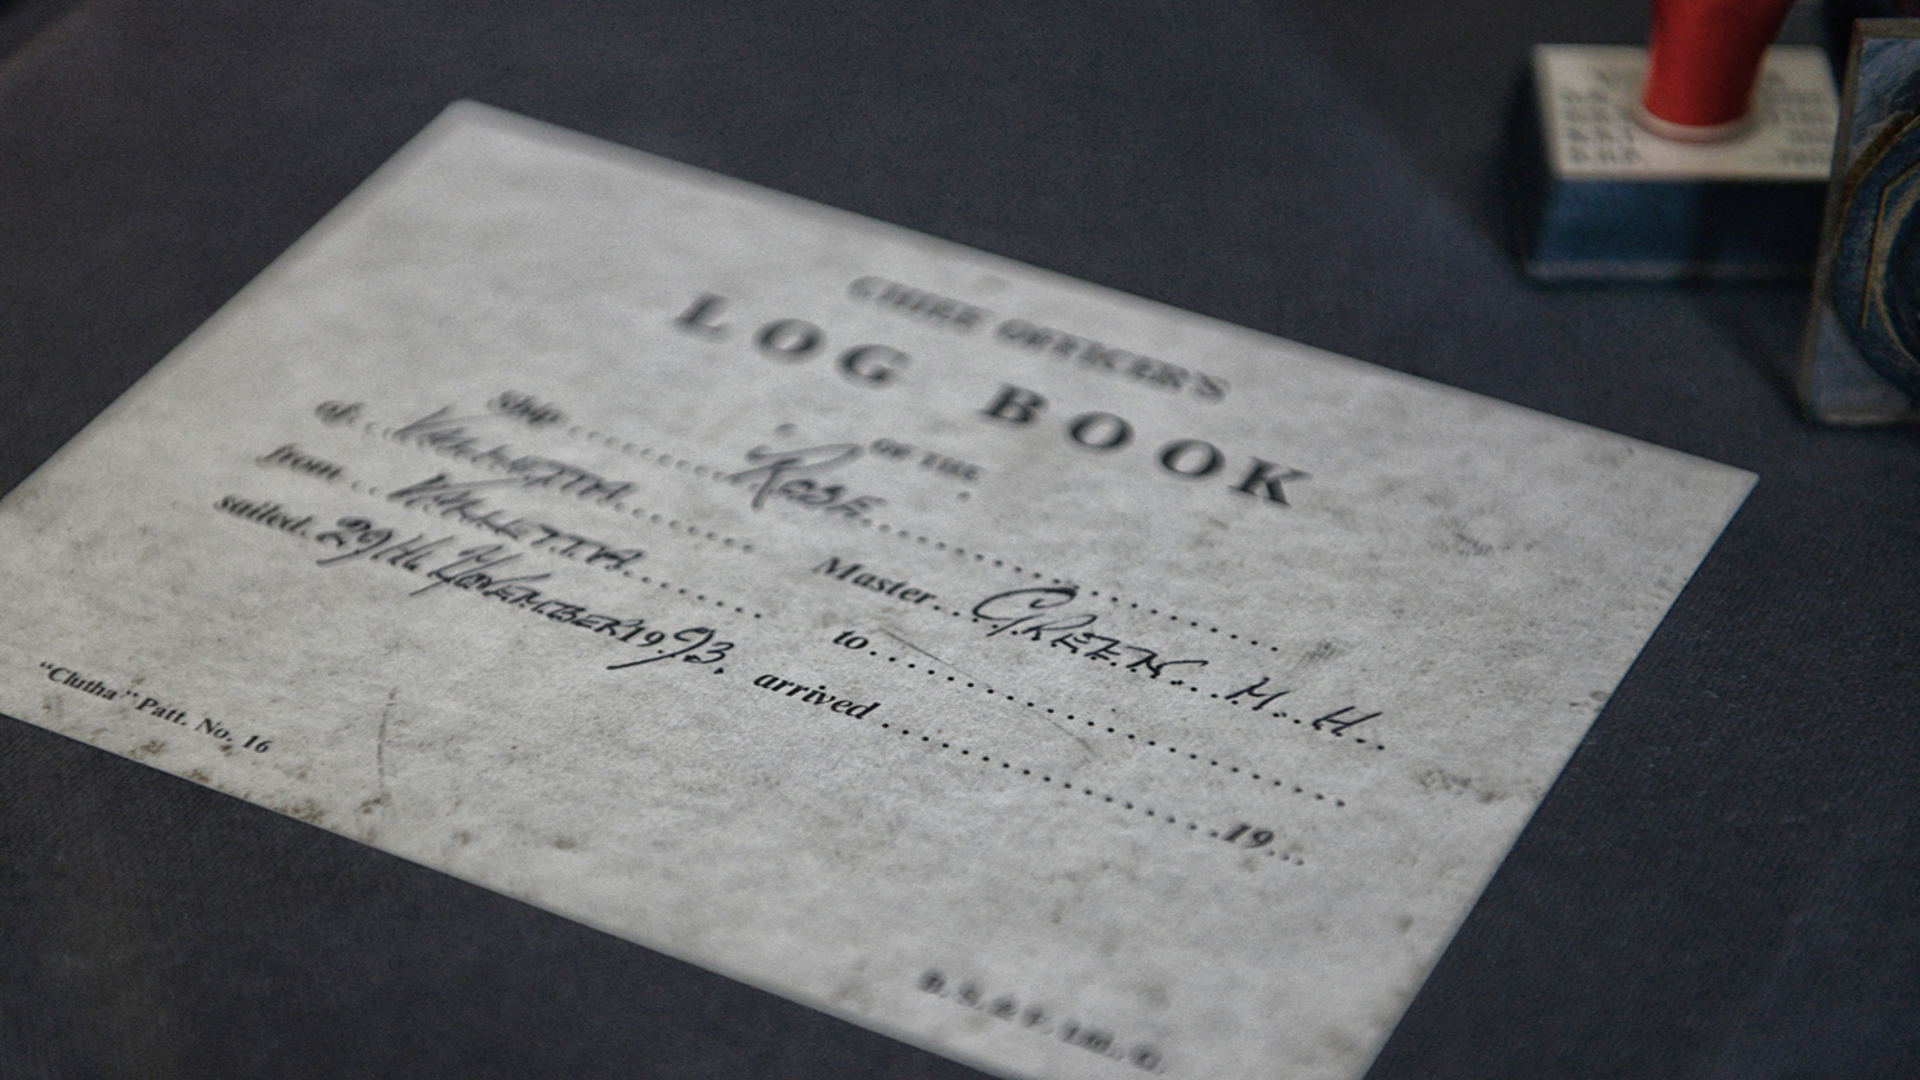 CHIEF OFFICER'S
LOG BOOK
OF THE
ship.......... "Rose..........
of... VALLETTA.......... Master... GREEN... M.. H..
from... VALLETTA.......... to..........
sailed. 29th NOVEMBER 19.93. arrived ..........19...
"Clutha" Patt. No. 16